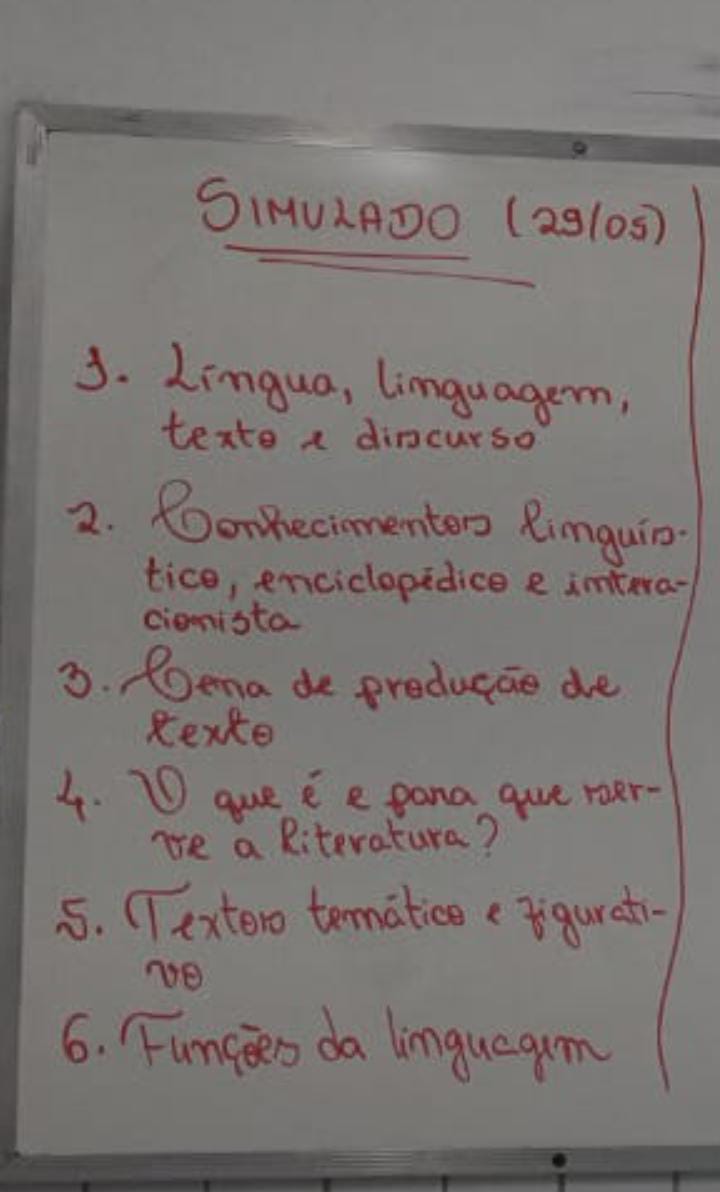 SIMULADO (29/05)
1. Língua, linguagem,
texto e discurso
2. Conhecimentos linguís-
tico, enciclopédico e intera-
cionista
3. Cena de produção de
texto
4. O que é e para que ser-
ve a literatura?
5. Textos temático e figurati-
vo
6. Funções da linguagem